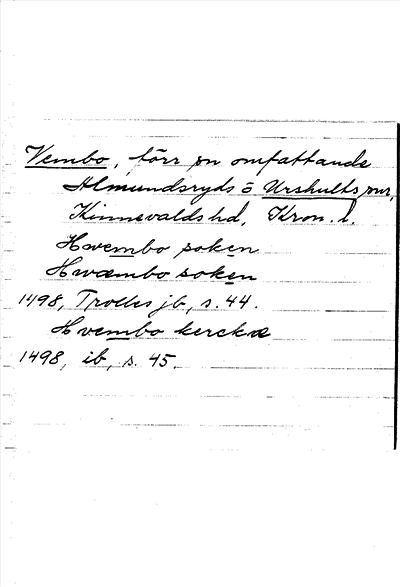 Vembo, förr sn omfattande
Almundsryds o Urshults snr,
Kinnevalds hd, Kron. l.
Hvembo soken
Hwæmbo soken
1498, Trolles jb, s. 44.
Hvembo kerckæ
1498, ib, s. 45.